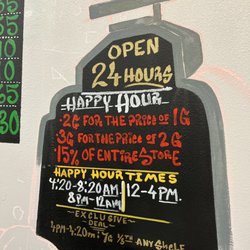 OPEN
24 HOURS
HAPPY HOUR
2G FOR THE PRICE OF 1G
3G FOR THE PRICE OF 2G
15% OF ENTIRE STORE
HAPPY HOUR TIMES
4:20-8:20AM 12-4PM.
8PM-12AM
-EXCLUSIVE-
DEAL
4PM-4:20PM: 7G ANY SHELF
5
65
65
30